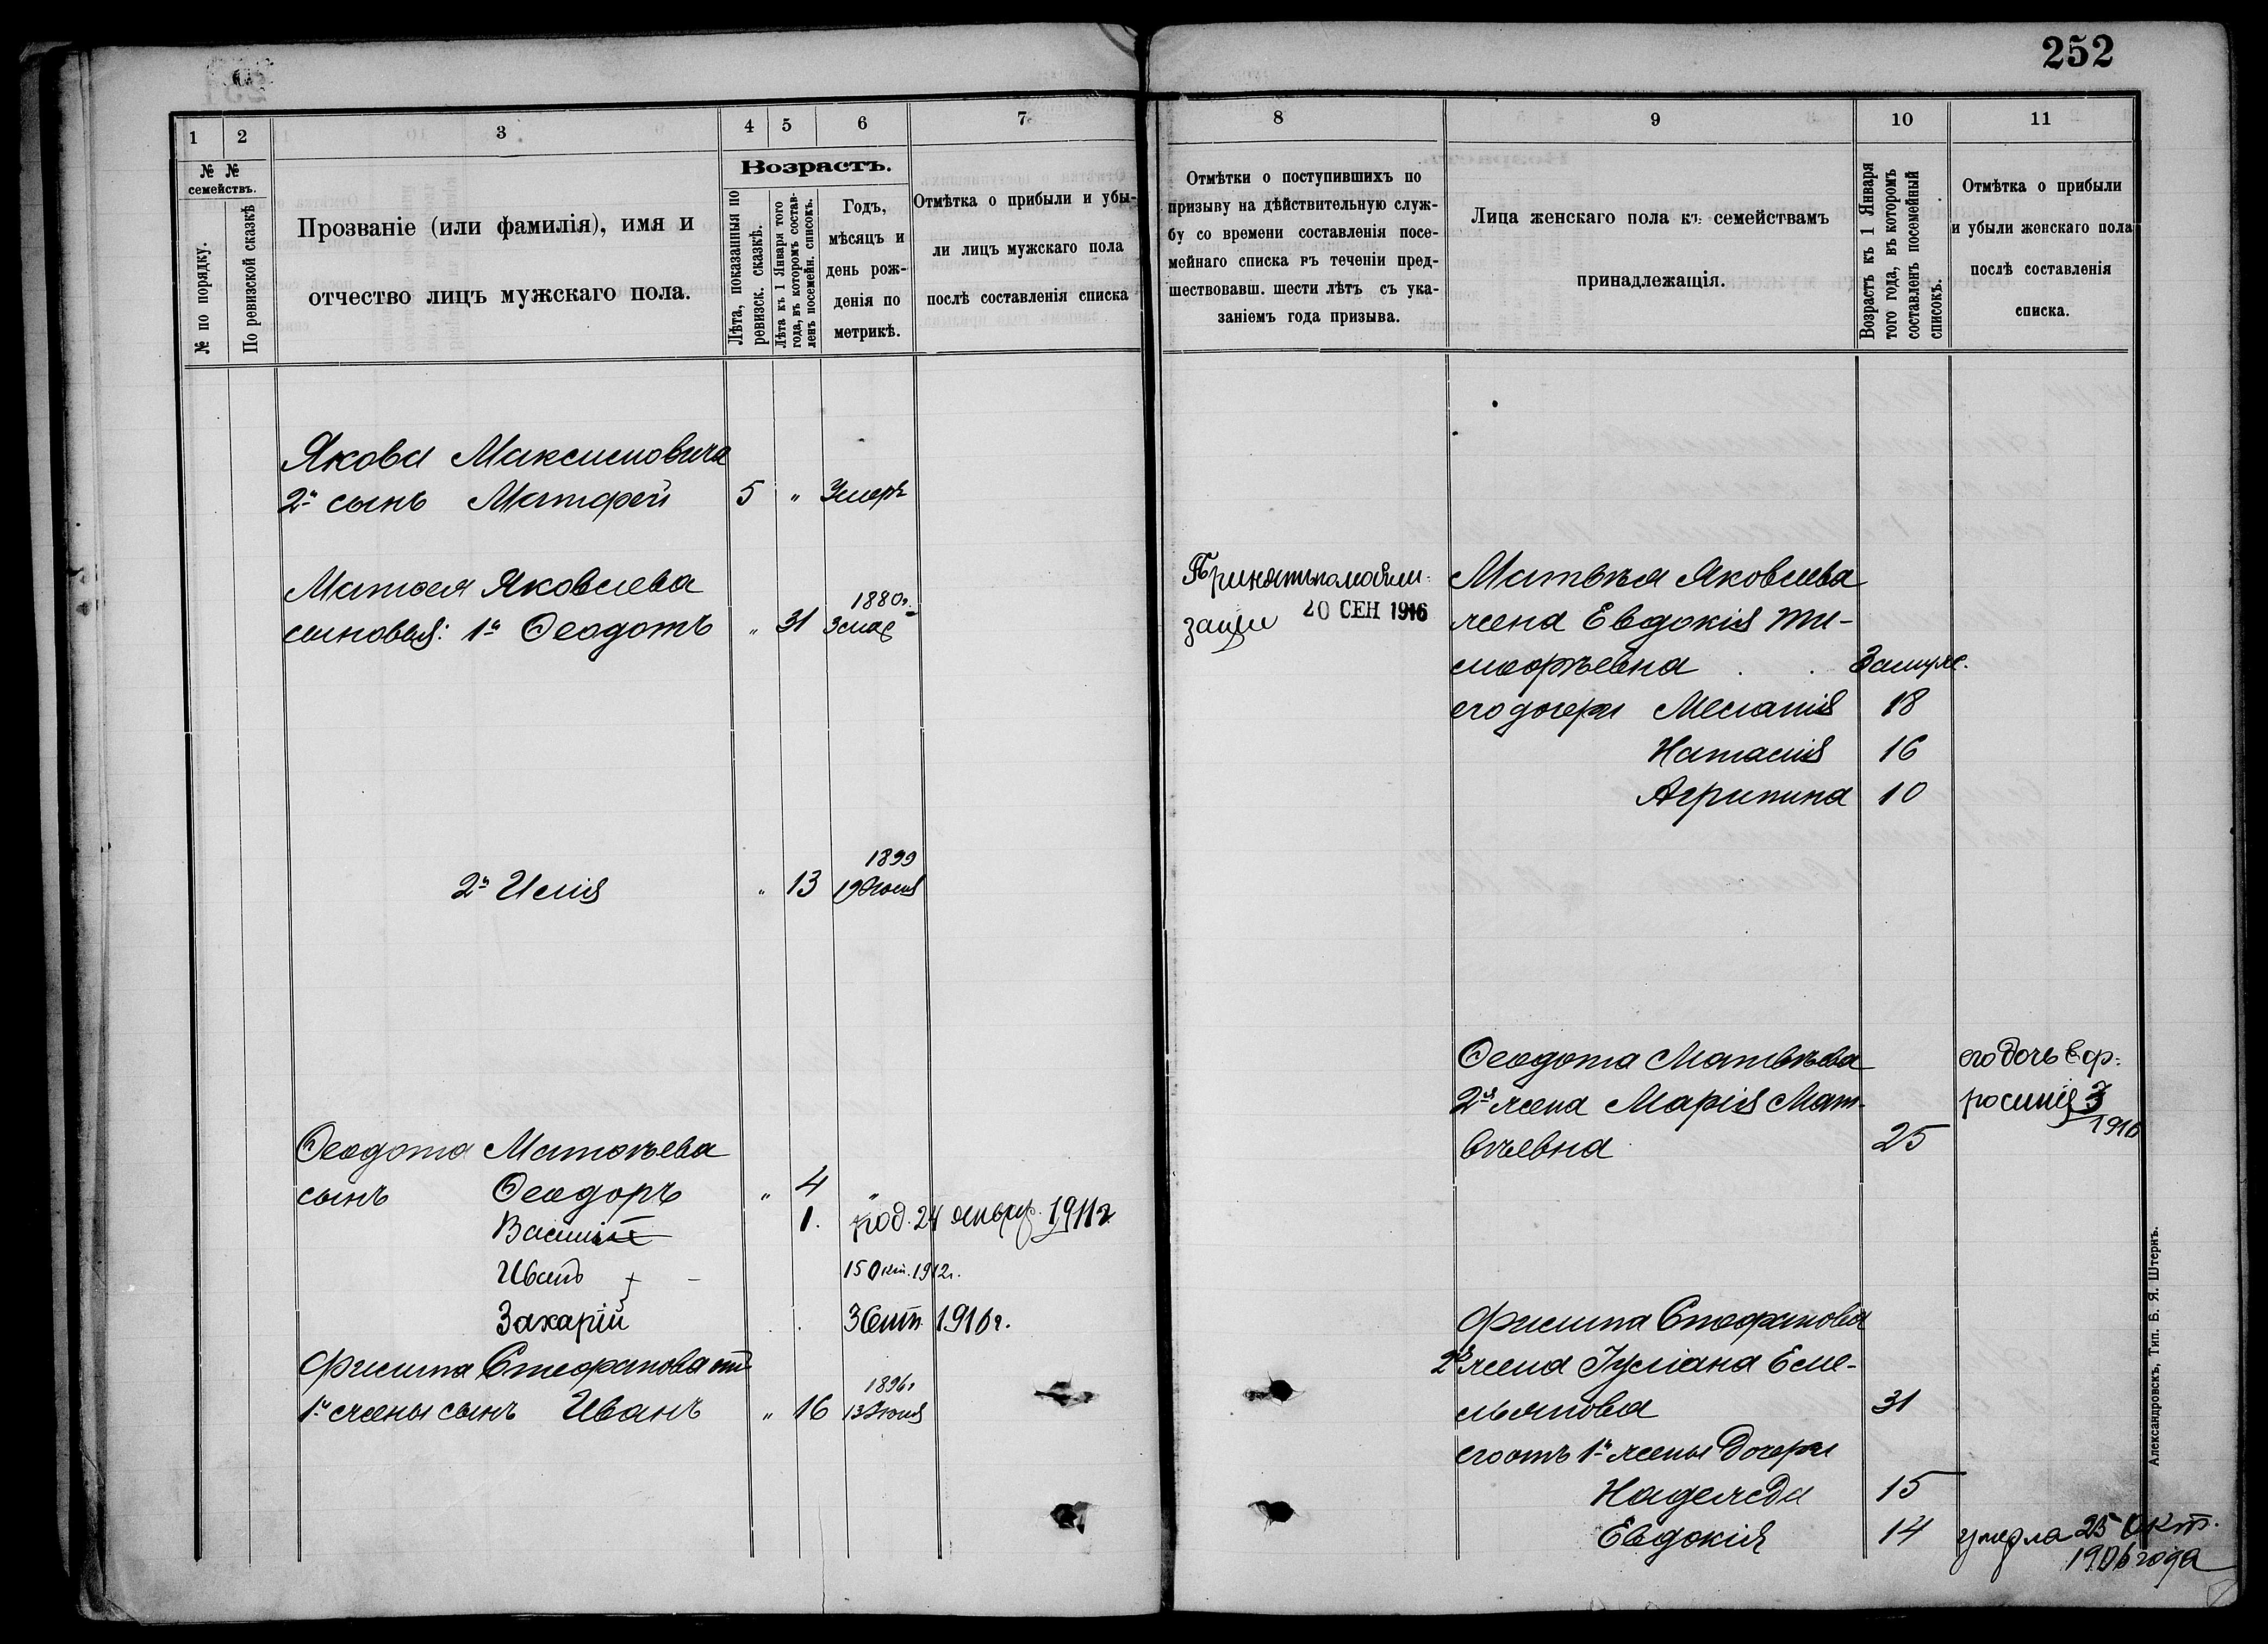 252
1 2 3 4 5 6 7
№ № семействъ.
№ по порядку.
По ревизской сказкѣ
Прозваніе (или фамилія), имя и
отчество лицъ мужскаго пола.
Возрастъ.
Лѣта, показанныя по
ревизск. сказкѣ.
Лѣта къ 1 Января того
года, въ которомъ состав-
ленъ посемейн. списокъ.
Годъ,
мѣсяцъ и
день рож-
денія по
метрикѣ.
Отмѣтка о прибыли и убы-
ли лицъ мужскаго пола
послѣ составленія списка
Якова Максимовича
2й сынъ Матфей 5 " Умеръ
Матвея Яковлева
1880г.
сыновья: 1й Ѳеодотъ " 31 3 мар
1899
2й Илія " 13 19 Іюля
Ѳеодота Матвѣева
сынъ Ѳеодоръ " 4 "
Василій 1. род. 24 январ. 1911г
Иванъ 15 Окт. 1912г.
Захарій 3 Сент. 1916г.
Филипа Стефанова отъ
1896г
1й жены сынъ Иванъ " 16 13 Іюня
8 9 10 11
Отмѣтки о поступившихъ по
призыву на дѣйствительную служ-
бу со времени составленія посе-
мейнаго списка въ теченіи пред-
шествовавш. шести лѣтъ съ ука-
заніемъ года призыва.
Лица женскаго пола къ семействамъ
принадлежащія.
Возрастъ къ 1 Января
того года, въ которомъ
составленъ посемейный
списокъ.
Отмѣтка о прибыли
и убыли женскаго пола
послѣ составленія
списка.
Принятъ по мобили-
20 СЕН 1916
заціи
Матвѣя Яковлева
жена Евдокія Ти-
мофѣевна Замуж.
его дочери Меланія 18
Наталія 16
Агрипина 10
Ѳеодота Матвѣева
2я жена Марія Мат-
вѣевна 25
его дочь Ефр-
росинія 3
1916
Филипа Стефанова
2я жена Іуліана Еме-
льянова 31
его отъ 1й жены дочери
Надежда 15
Евдокія 14 умерла 25 Окт.
1906 года
Александровскъ, Тип. Б. Я. Штернъ.